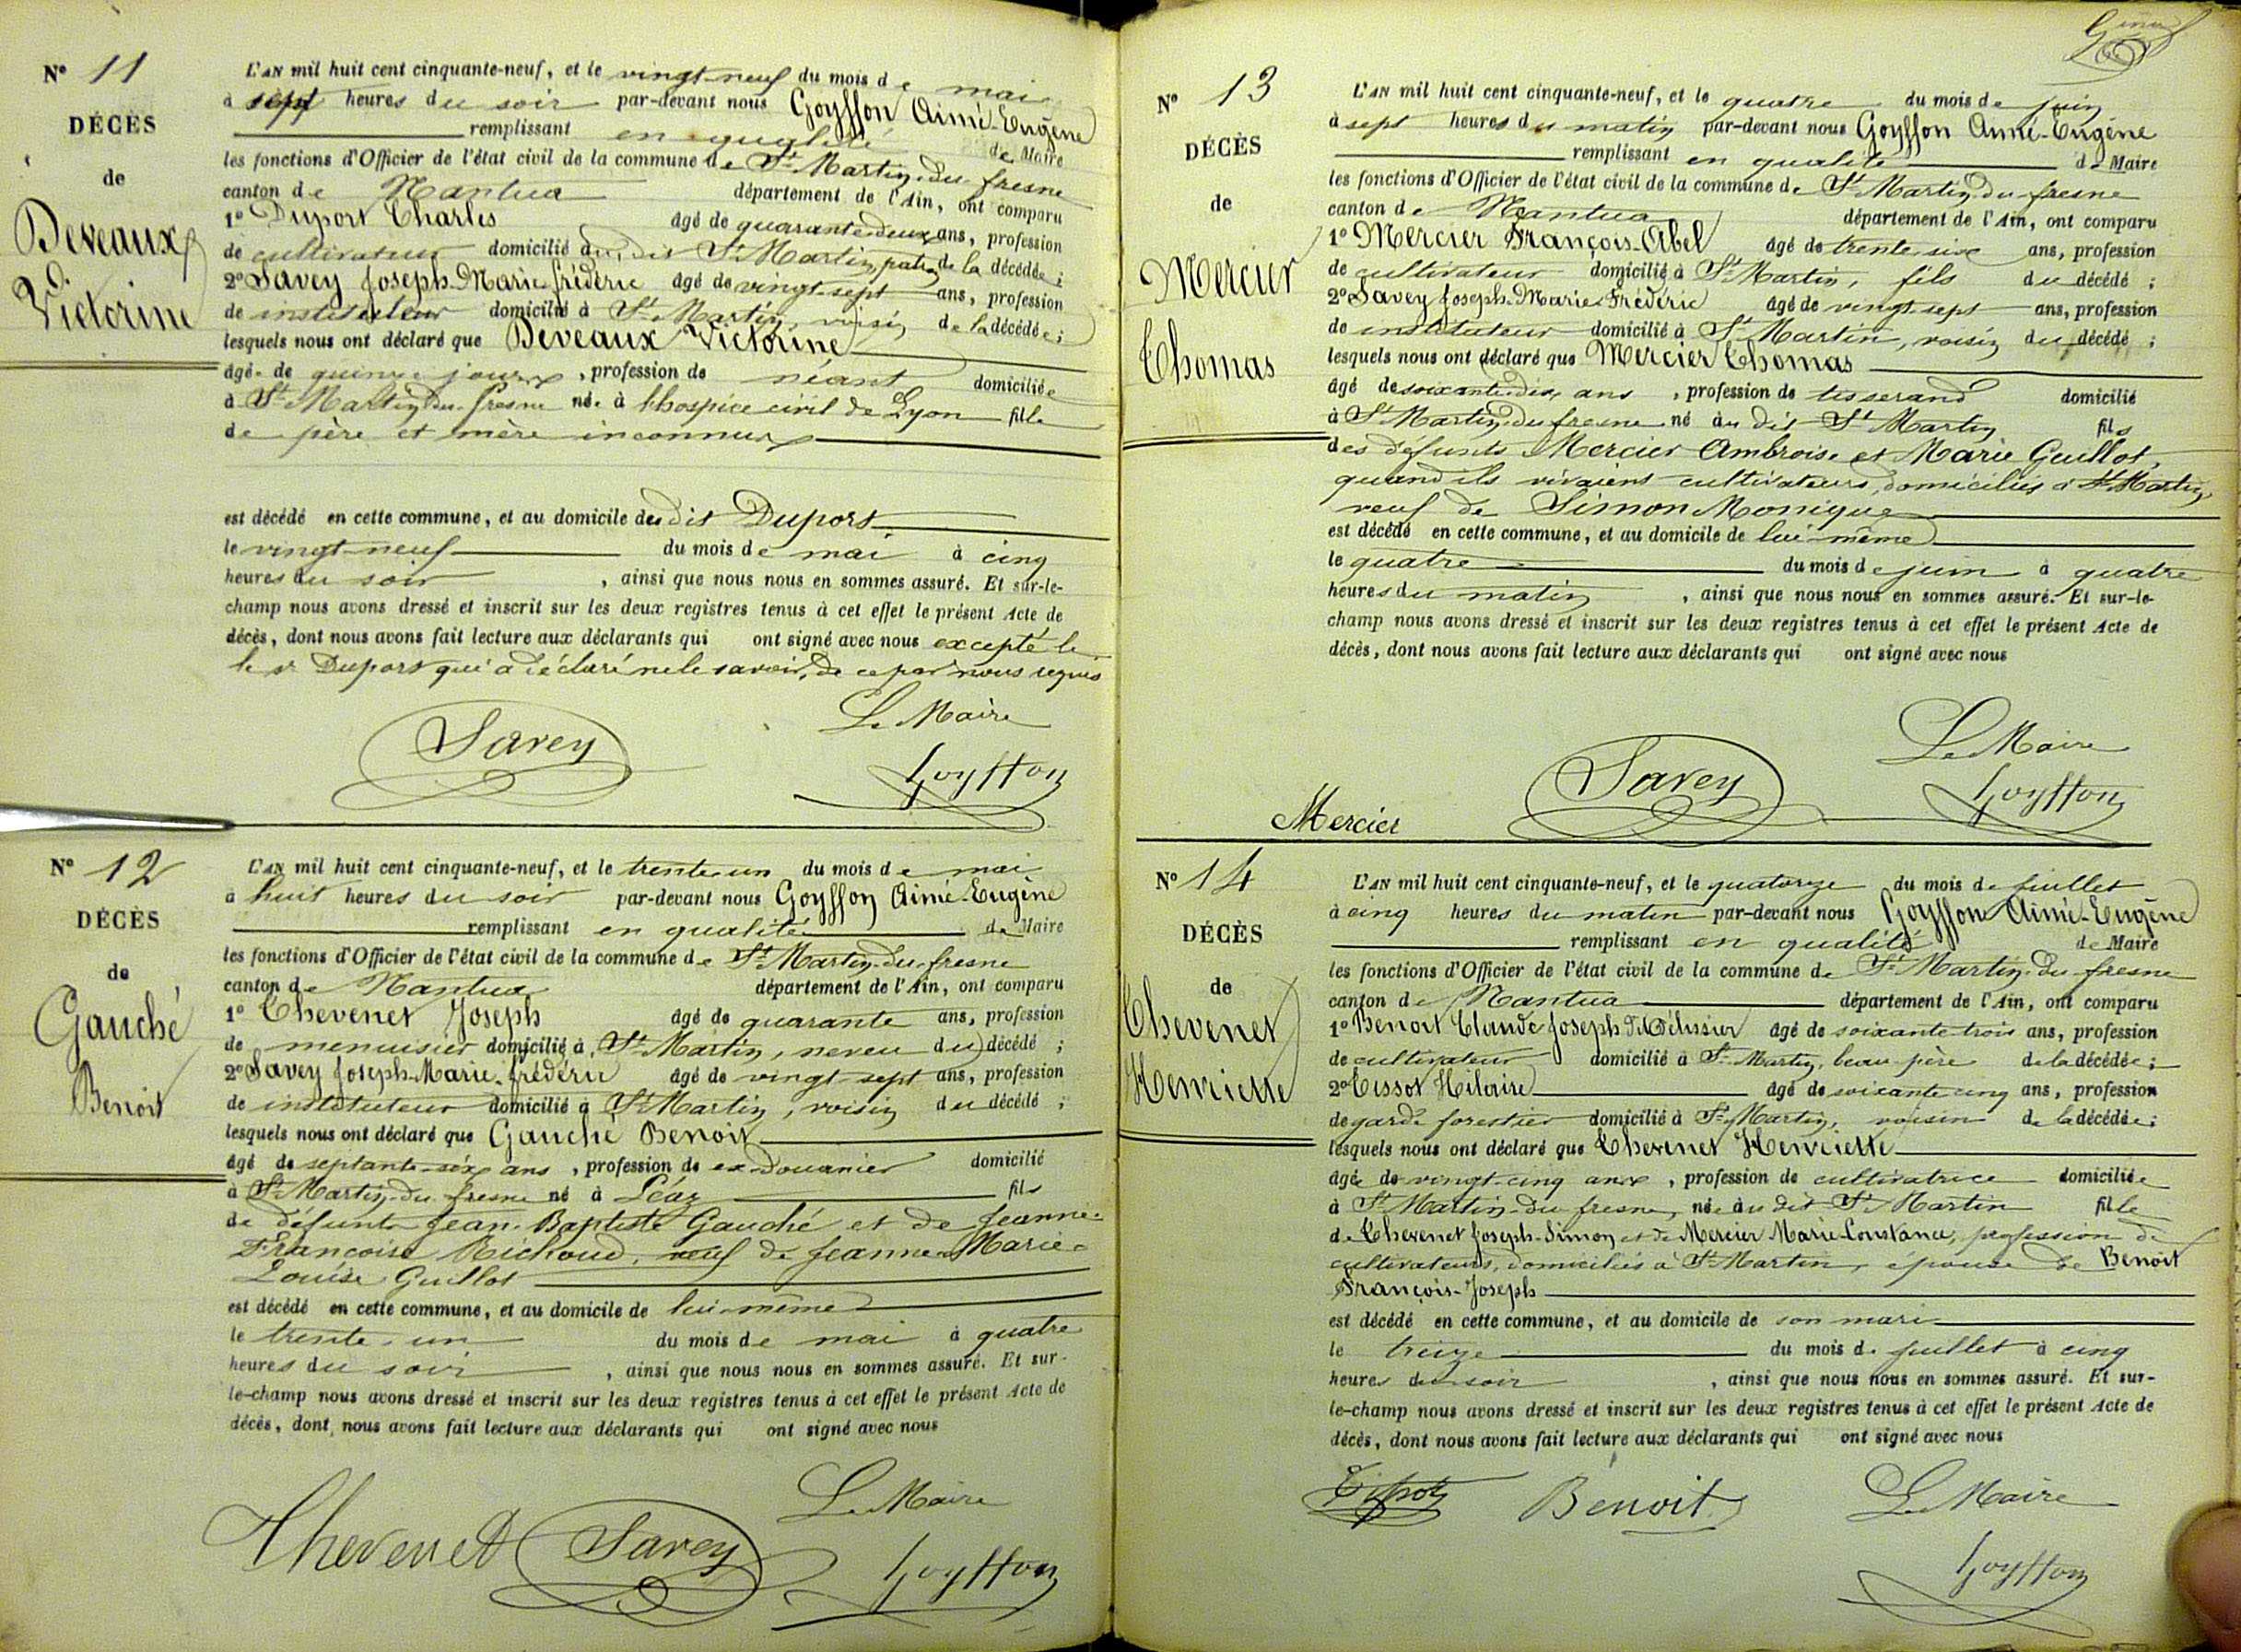 Nº 11
DÉCÈS
de
Deveaux
Victorine
L'AN mil huit cent cinquante-neuf, et le vingt-neuf du mois de mai
à sept heures du soir par-devant nous Goyffon Aimé-Eugène
remplissant en qualité de Maire
les fonctions d'Officier de l'état civil de la commune de St Martin-du-fresne
canton de Nantua département de l'Ain, ont comparu
1º Duport Charles âgé de quarante-deux ans, profession
de cultivateur domicilié au dit St Martin, patron de la décédée ;
2º Savey Joseph-Marie-frédéric âgé de vingt-sept ans, profession
de instituteur domicilié à St Martin, voisin de la décédée ;
lesquels nous ont déclaré que Deveaux Victorine
âgée de quinze jours, profession de néant domiciliée
à St Martin-du-fresne née à l'hospice civil de Lyon fille
de père et mère inconnus
est décédé en cette commune, et au domicile du dit Duport
le vingt-neuf du mois de mai à cinq
heures du soir, ainsi que nous nous en sommes assuré. Et sur-le-
champ nous avons dressé et inscrit sur les deux registres tenus à cet effet le présent Acte de
décès, dont nous avons fait lecture aux déclarants qui ont signé avec nous excepté le
le sr Duport qui a déclaré ne le savoir, de ce par nous requis
Le Maire
Savey
Goyffon
Nº 12
DÉCÈS
de
Gauché
Benoit
L'AN mil huit cent cinquante-neuf, et le trente-un du mois de mai
à huit heures du soir par-devant nous Goyffon Aimé-Eugène
remplissant en qualité de Maire
les fonctions d'Officier de l'état civil de la commune de St Martin-du-fresne
canton de Nantua département de l'Ain, ont comparu
1º Chevenet Joseph âgé de quarante ans, profession
de menuisier domicilié à St Martin, neveu du décédé ;
2º Savey Joseph-Marie-frédéric âgé de vingt-sept ans, profession
de instituteur domicilié à St Martin, voisin du décédé ;
lesquels nous ont déclaré que Gauché Benoit
âgé de septante-six ans, profession de ex-Douanier domicilié
à St Martin-du-fresne né à Léaz fils
de défunts Jean-Baptiste Gauché et de Jeanne-
Françoise Richoud, veuf de Jeanne-Marie-
Louise Guillot
est décédé en cette commune, et au domicile de lui-même
le trente-un du mois de mai à quatre
heures du soir, ainsi que nous nous en sommes assuré. Et sur-
le-champ nous avons dressé et inscrit sur les deux registres tenus à cet effet le présent Acte de
décès, dont nous avons fait lecture aux déclarants qui ont signé avec nous
Le Maire
Chevenet
Savey
Goyffon
Nº 13
DÉCÈS
de
Mercier
Thomas
L'AN mil huit cent cinquante-neuf, et le quatre du mois de juin
à sept heures du matin par-devant nous Goyffon Aimé-Eugène
remplissant en qualité de Maire
les fonctions d'Officier de l'état civil de la commune de St Martin-du-fresne
canton de Nantua département de l'Ain, ont comparu
1º Mercier François-Abel âgé de trente-six ans, profession
de cultivateur domicilié à St Martin, fils du décédé ;
2º Savey Joseph-Marie-Frédéric âgé de vingt-sept ans, profession
de instituteur domicilié à St Martin, voisin du décédé ;
lesquels nous ont déclaré que Mercier Thomas
âgé de soixante-dix ans, profession de tisserand domicilié
à St Martin-du-fresne né au dit St Martin fils
des défunts Mercier Ambroise et Marie Guillot,
quand ils vivaient cultivateurs, domiciliés à St Martin,
veuf de Simon Monique
est décédé en cette commune, et au domicile de lui-même
le quatre du mois de juin à quatre
heures du matin, ainsi que nous nous en sommes assuré. Et sur-le-
champ nous avons dressé et inscrit sur les deux registres tenus à cet effet le présent Acte de
décès, dont nous avons fait lecture aux déclarants qui ont signé avec nous
Le Maire
Mercier
Savey
Goyffon
Nº 14
DÉCÈS
de
Chevenet
Henriette
L'AN mil huit cent cinquante-neuf, et le quatorze du mois de juillet
à cinq heures du matin par-devant nous Goyffon Aimé-Eugène
remplissant en qualité de Maire
les fonctions d'Officier de l'état civil de la commune de St Martin-du-fresne
canton de Nantua département de l'Ain, ont comparu
1º Benoit Claude Joseph âgé de soixante-trois ans, profession
de cultivateur domicilié à St Martin, beau-père de la décédée ;
2º Tissot Hilaire âgé de soixante-cinq ans, profession
de garde forestier domicilié à St Martin, voisin de la décédée ;
lesquels nous ont déclaré que Chevenet Henriette
âgée de vingt-cinq ans, profession de cultivatrice domiciliée
à St Martin-du-fresne, née au dit St Martin fille
de Chevenet Joseph-Simon et de Mercier Marie-Constance, profession de
cultivateurs, domiciliés à St Martin, épouse de Benoit
François-Joseph
est décédé en cette commune, et au domicile de son mari
le treize du mois de juillet à cinq
heures du soir, ainsi que nous nous en sommes assuré. Et sur-
le-champ nous avons dressé et inscrit sur les deux registres tenus à cet effet le présent Acte de
décès, dont nous avons fait lecture aux déclarants qui ont signé avec nous
Tissot
Benoit
Le Maire
Goyffon